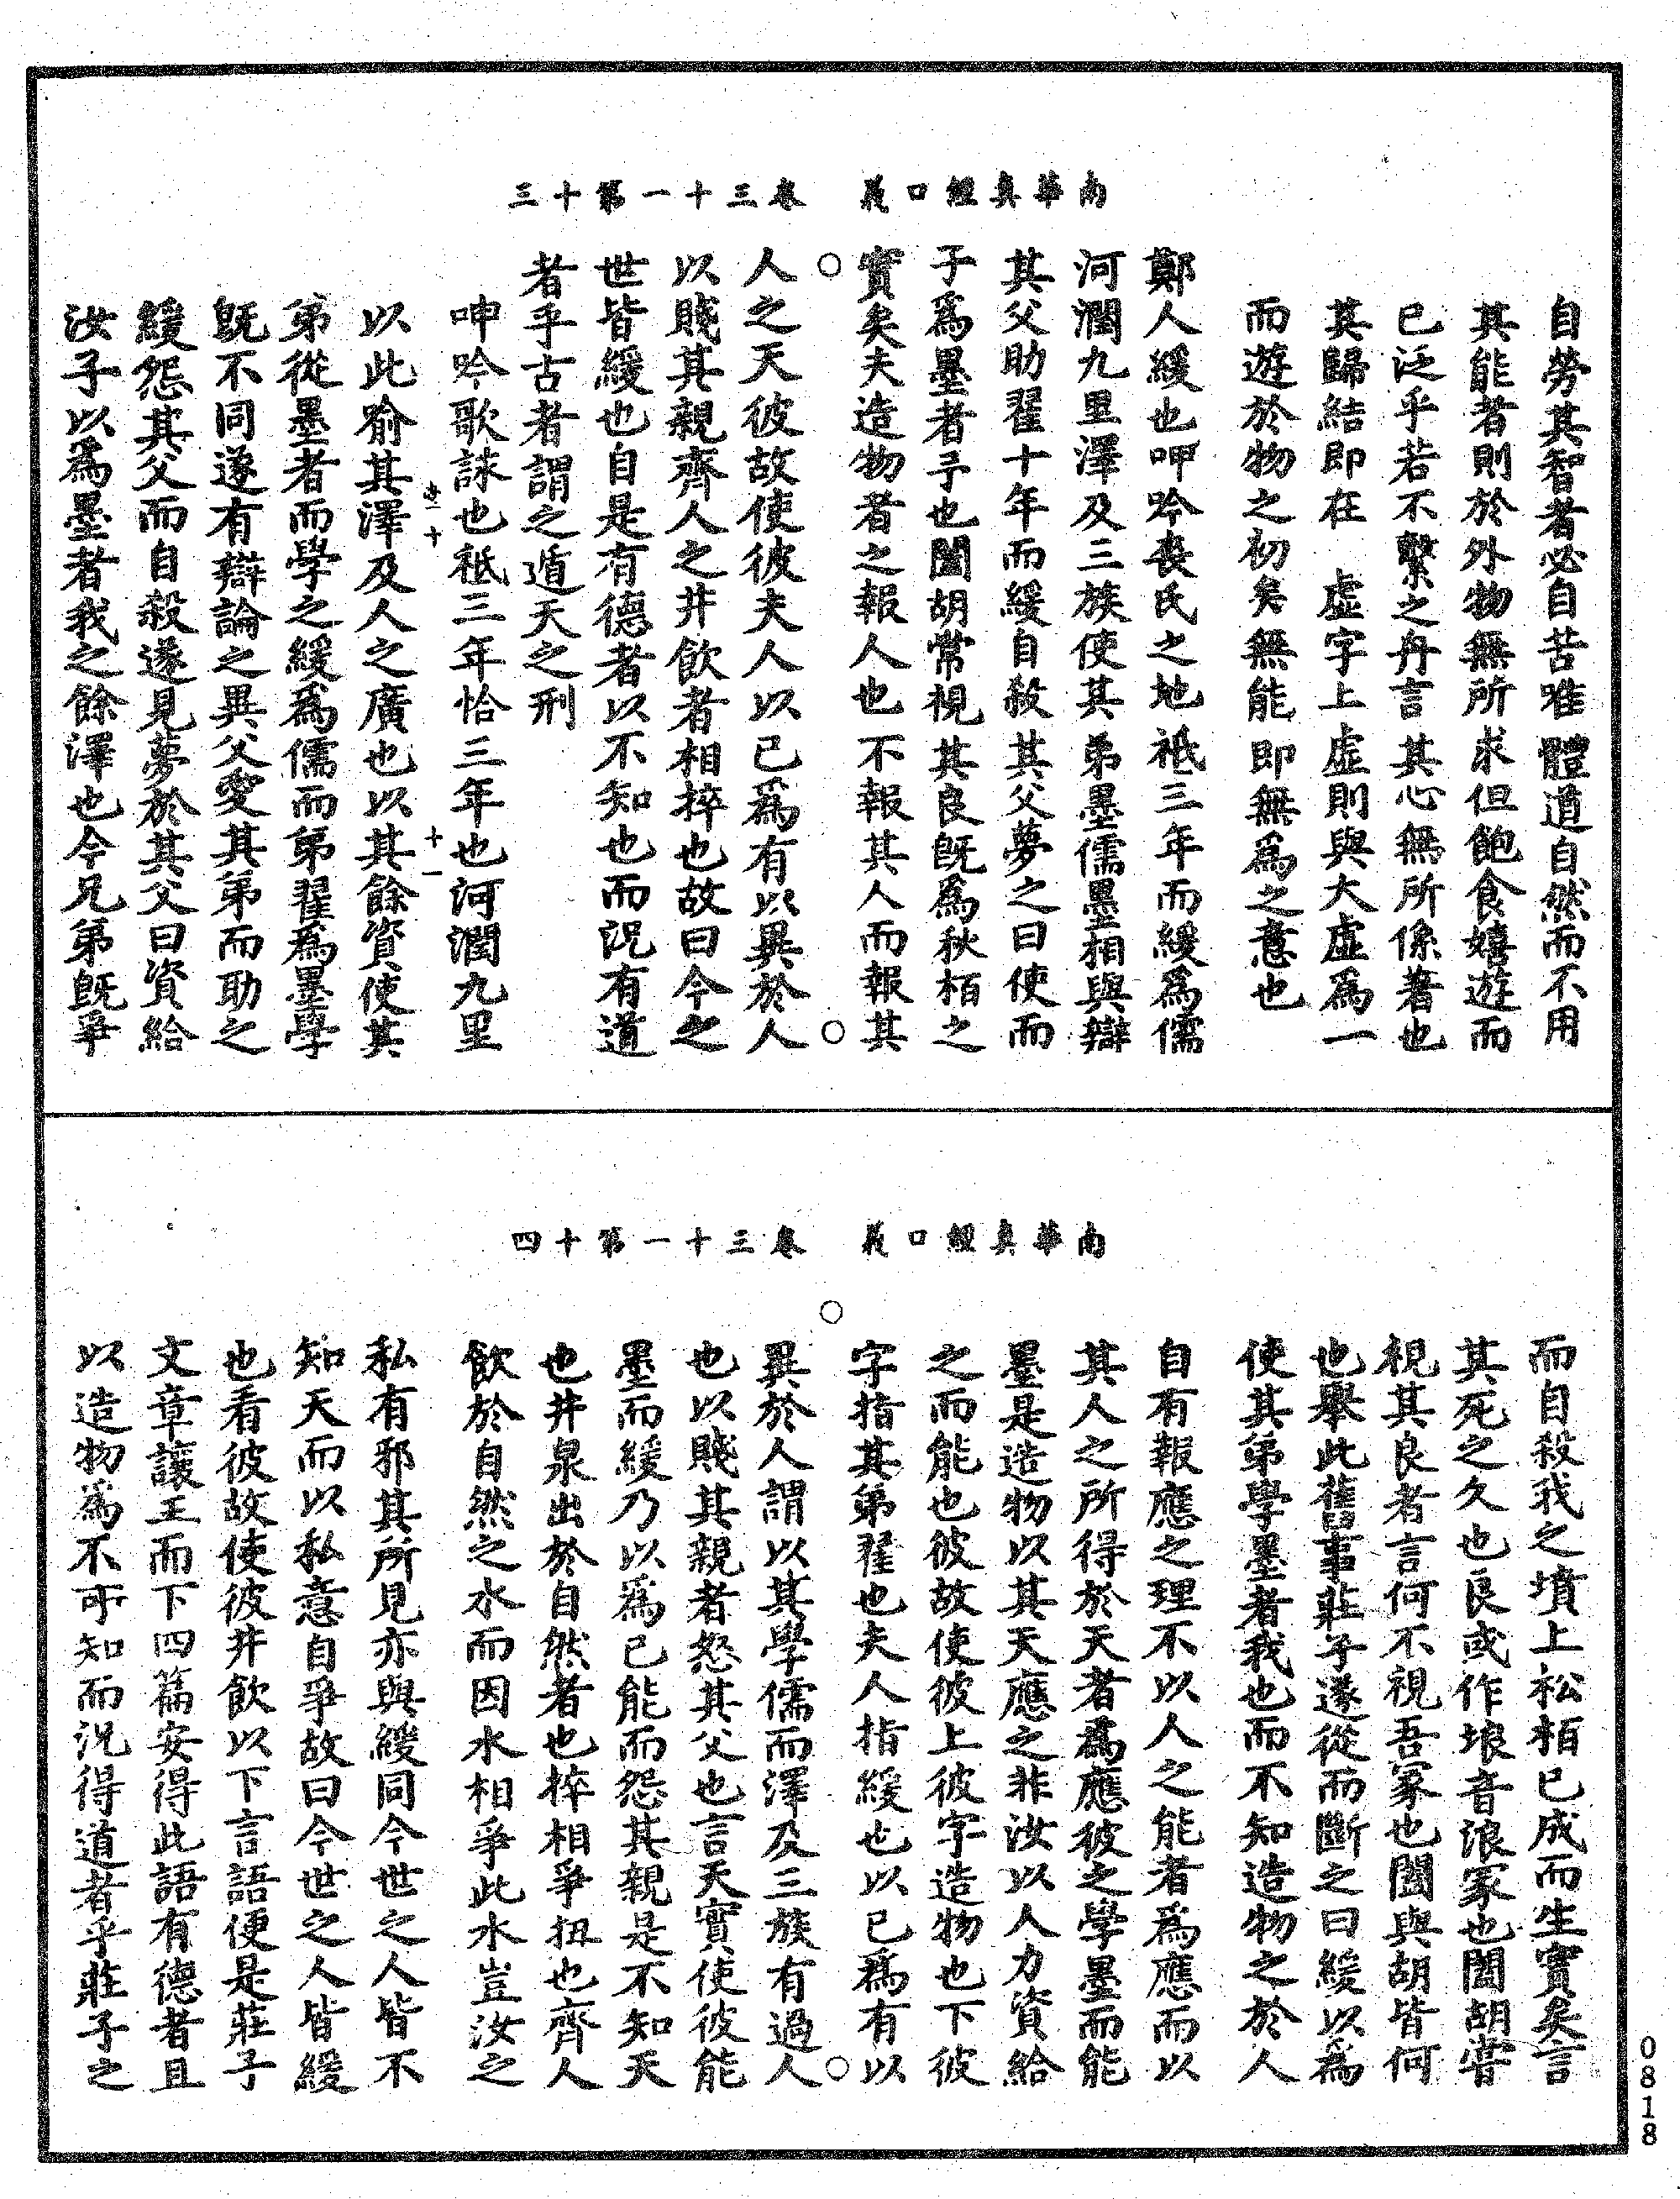 南華真經口義　卷三十一第十三
自勞其智者必自苦唯體道自然而不用
其能者則於外物無所求但飽食嬉遊而
已泛乎若不繫之舟言其心無所係著也
其歸結即在　虛字上虛則與大虛爲一
而遊於物之初矣無能即無爲之意也
鄭人緩也呻吟裘氏之地祗三年而緩爲儒
河潤九里澤及三族使其弟墨儒墨相與辯
其父助翟十年而緩自殺其父夢之曰使而
子爲墨者予也闔胡常視其良旣爲秋栢之
實矣夫造物者之報人也不報其人而報其
人之天彼故使彼夫人以已爲有以異於人
以賤其親齊人之井飲者相捽也故曰今之
世皆緩也自是有德者以不知也而況有道
者乎古者謂之遁天之刑
呻吟歌詠也祗三年恰三年也河潤九里
以此喻其澤及人之廣也以其餘資使其
弟從墨者而學之緩爲儒而弟翟爲墨學
旣不同遂有辯論之異父愛其弟而助之
緩怨其父而自殺遂見夢於其父曰資給
汝子以爲墨者我之餘澤也今兄弟旣爭
南華真經口義　卷三十一第十四
而自殺我之墳上松栢已成而生實矣言
其死之久也良或作埌音浪冢也闔胡嘗
視其良者言何不視吾冢也闔與胡皆何
也舉此舊事莊子遂從而斷之曰緩以爲
使其弟學墨者我也而不知造物之於人
自有報應之理不以人之能者爲應而以
其人之所得於天者爲應彼之學墨而能
墨是造物以其天應之非汝以人力資給
之而能也彼故使彼上彼字造物也下彼
字指其弟翟也夫人指緩也以已爲有以
異於人謂以其學儒而澤及三族有過人
也以賤其親者怒其父也言天實使彼能
墨而緩乃以爲已能而怨其親是不知天
也井泉出於自然者也捽相爭扭也齊人
飲於自然之水而因水相爭此水豈汝之
私有邪其所見亦與緩同今世之人皆不
知天而以私意自爭故曰今世之人皆緩
也看彼故使彼井飲以下言語便是莊子
文章讓王而下四篇安得此語有德者且
以造物爲不可知而況得道者乎莊子之
0818